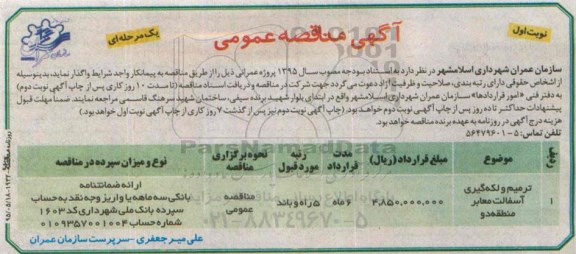 نوبت اول
آگهی مناقصه عمومی
یک مرحله‌ای
سازمان عمران شهرداری اسلامشهر در نظر دارد به استناد بودجه مصوب سال ۱۳۹۵ پروژه عمرانی ذیل را از طریق مناقصه به پیمانکار واجد شرایط واگذار نماید، بدینوسیله
از اشخاص حقوقی دارای رتبه بندی، صلاحیت و ظرفیت آزاد دعوت می گردد جهت شرکت در مناقصه و دریافت اسناد مناقصه (تا مدت ۱۰ روز کاری پس از چاپ آگهی نوبت دوم)
به دفتر فنی «امور قراردادها» سازمان عمران شهرداری اسلامشهر واقع در ابتدای بلوار شهید برنده سیفی، ساختمان شهید سرهنگ قاسمی مراجعه نمایند. ضمنا مهلت قبول
پیشنهادات حداکثر تا ده روز پس از چاپ آگهی نوبت دوم خواهد بود. (چاپ آگهی نوبت دوم نیز پس از گذشت ۷ روز کاری از چاپ آگهی نوبت اول خواهد بود.)
هزینه درج آگهی در روزنامه به عهده برنده مناقصه خواهد بود.
تلفن تماس: ۵-۵۶۴۷۹۶۰۱
ردیف | موضوع | مبلغ قرارداد (ریال) | مدت قرارداد | رتبه مورد قبول | نحوه برگزاری مناقصه | نوع و میزان سپرده در مناقصه
۱ | ترمیم و لکه‌گیری آسفالت معابر منطقه دو | ۴,۸۵۰,۰۰۰,۰۰۰ | ۶ ماه | ۵ راه و باند | مناقصه عمومی | ارائه ضمانتنامه بانکی سه ماهه یا واریز وجه نقد به حساب سپرده بانک ملی شهرداری کد ۱۶۰۳ شماره حساب ۰۱۰۹۳۵۷۰۰۱۰۰۴
علی میر جعفری - سرپرست سازمان عمران
ParsNamadData
۰۲۱-۸۸۳۴۹۶۷۰-۵